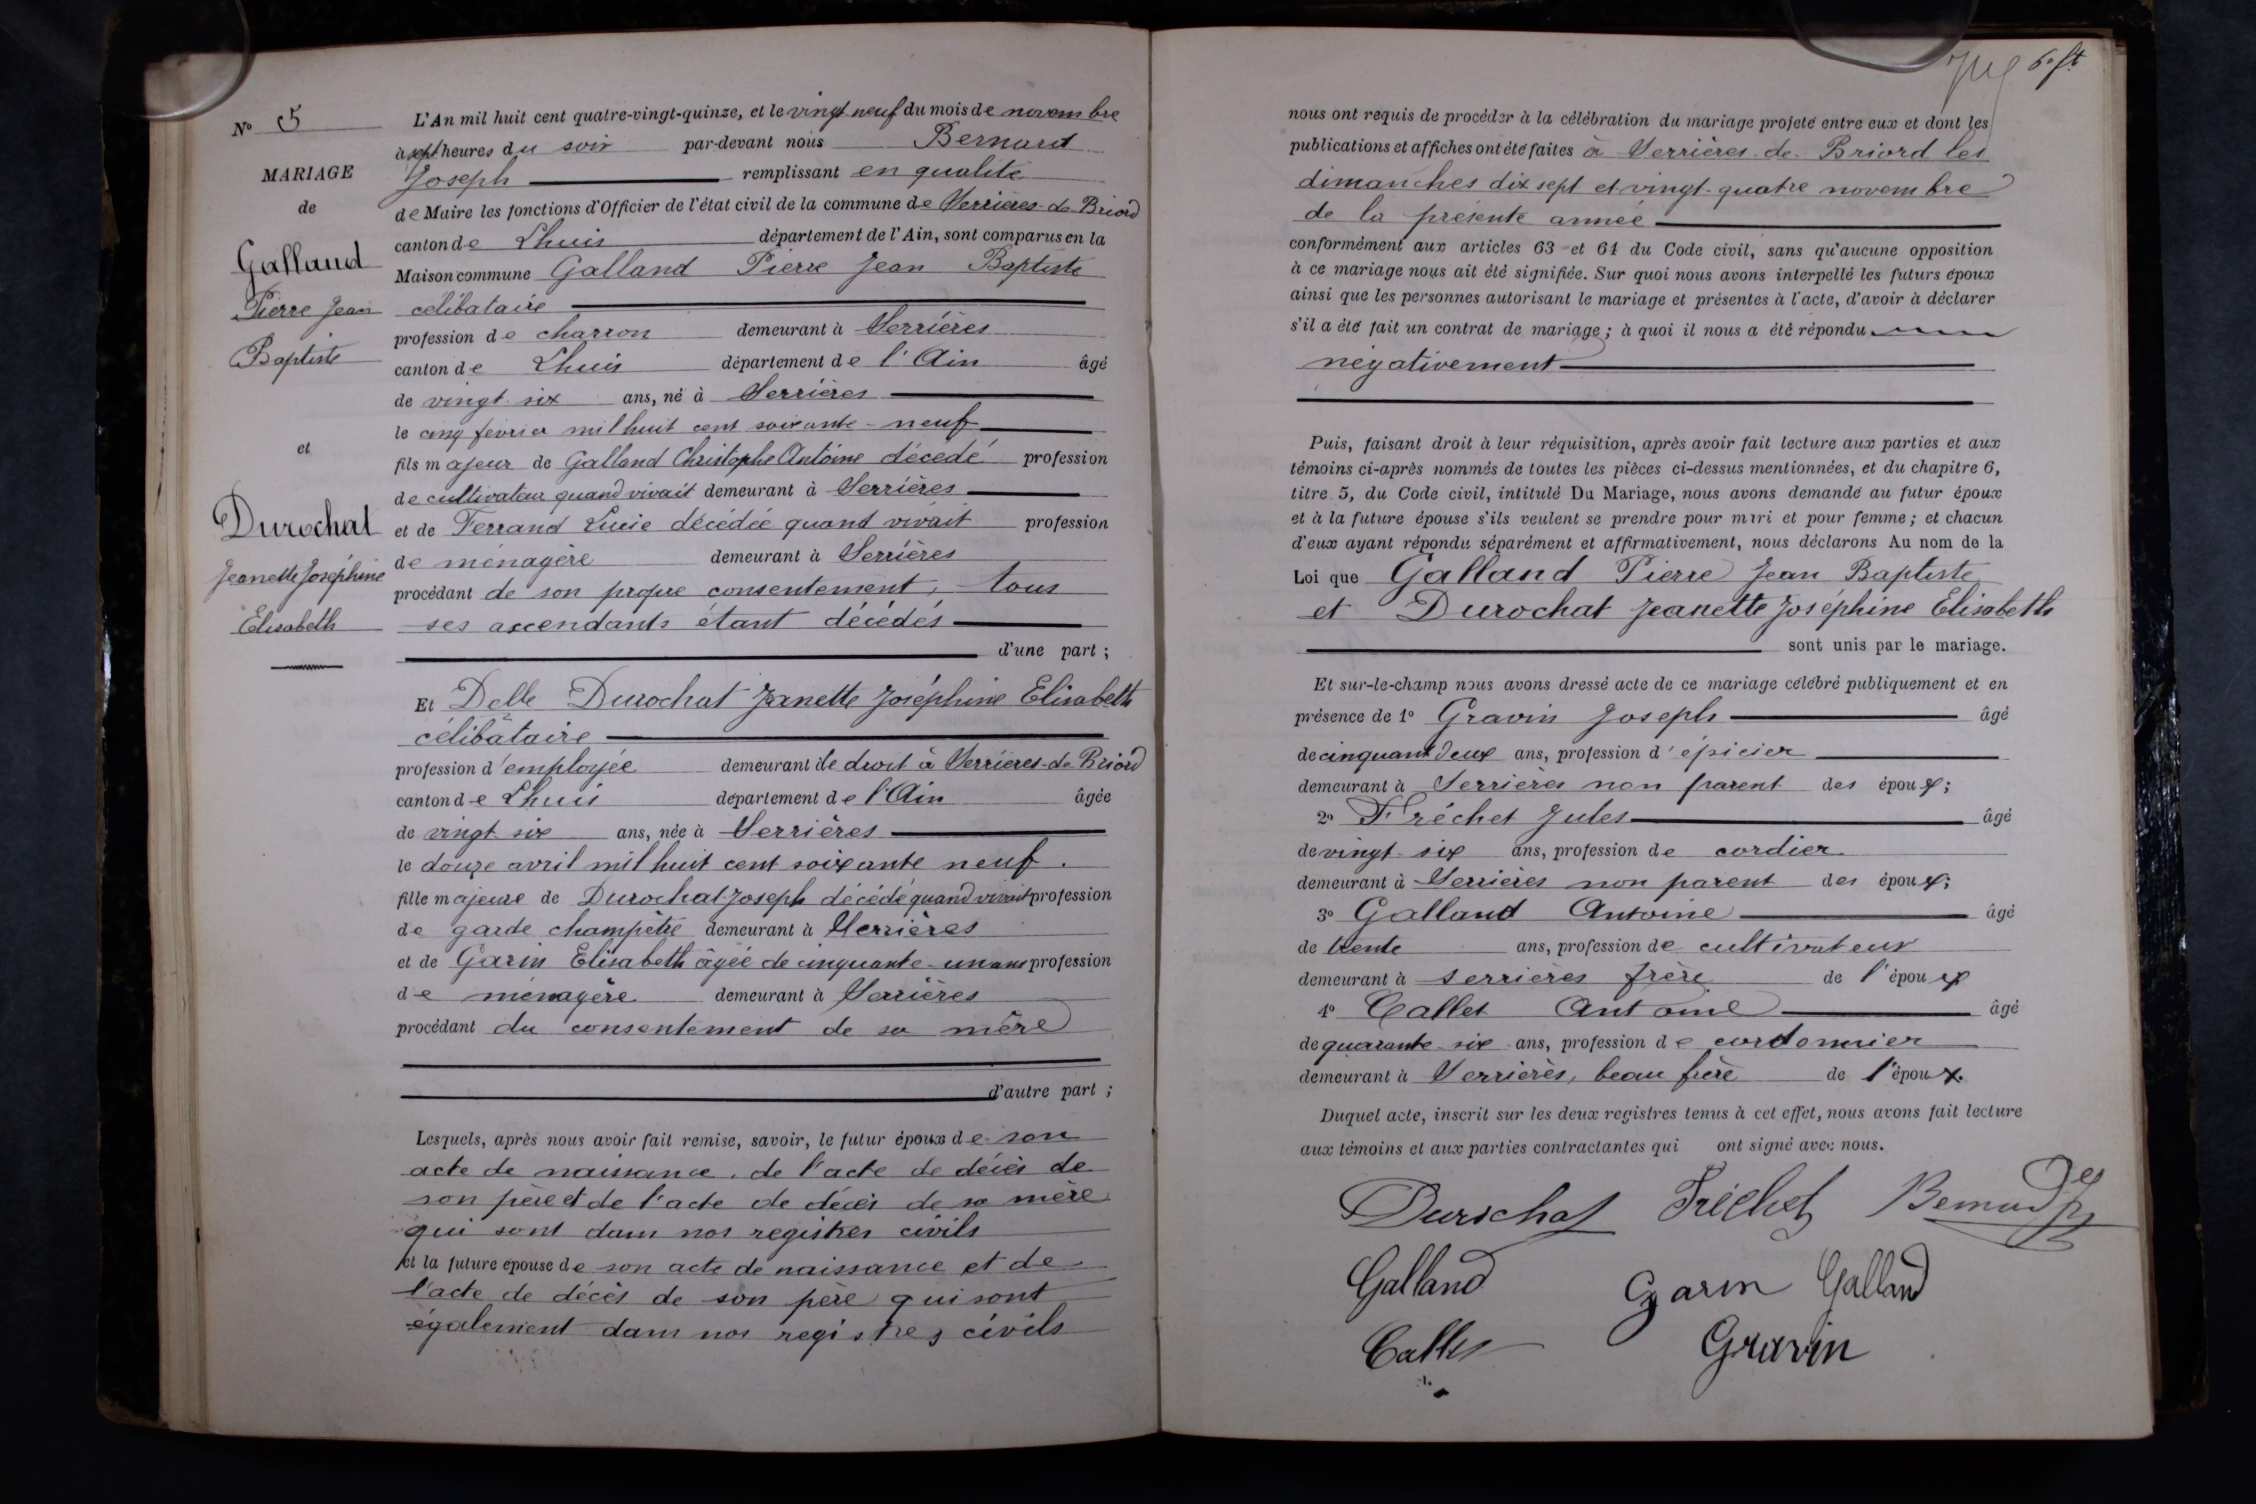 N° 5
MARIAGE
de
Galland
Pierre Jean
Baptiste
et
Durochat
Jeanette Joséphine
Elisabeth
L'An mil huit cent quatre-vingt-quinze, et le vingt neuf du mois de novembre
à sept heures du soir par-devant nous Bernard
Joseph remplissant en qualité
de Maire les fonctions d'Officier de l'état civil de la commune de Serrières-de-Briord
canton de Lhuis département de l'Ain, sont comparus en la
Maison commune Galland Pierre Jean Baptiste
célibataire
profession de charron demeurant à Serrières
canton de Lhuis département de l'Ain âgé
de vingt six ans, né à Serrières
le cinq février mil huit cent soixante-neuf
fils majeur de Galland Christophe Antoine décédé profession
de cultivateur quand vivait demeurant à Serrières
et de Ferrand Lucie décédée quant vivait profession
de ménagère demeurant à Serrières
procédant de son propre consentement, tous
ses ascendants étant décédés
d'une part ;
Et Delle Durochat Jeanette Joséphine Elisabeth
célibataire
profession d'employée demeurant de droit à Serrières-de-Briord
canton de Lhuis département de l'Ain âgée
de vingt six ans, née à Serrières
le douze avril mil huit cent soixante neuf.
fille majeure de Durochat Joseph décédé quand vivait profession
de garde champêtre demeurant à Serrières
et de Garin Elisabeth âgée de cinquante-un ans profession
de ménagère demeurant à Serrières
procédant du consentement de sa mère
d'autre part ;
Lesquels, après nous avoir fait remise, savoir, le futur époux de son
acte de naissance, de l'acte de décès de
son père et de l'acte de décès de sa mère
qui sont dans nos registres civils
et la future épouse de son acte de naissance et de
l'acte de décès de son père qui sont
également dans nos registres civils
6e ft
nous ont requis de procéder à la célébration du mariage projeté entre eux et dont les
publications et affiches ont été faites à Serrières-de-Briord les
dimanches dix sept et vingt-quatre novembre
de la présente année
conformément aux articles 63 et 64 du Code civil, sans qu'aucune opposition
à ce mariage nous ait été signifiée. Sur quoi nous avons interpellé les futurs époux
ainsi que les personnes autorisant le mariage et présentes à l'acte, d'avoir à déclarer
s'il a été fait un contrat de mariage ; à quoi il nous a été répondu
négativement
Puis, faisant droit à leur réquisition, après avoir fait lecture aux parties et aux
témoins ci-après nommés de toutes les pièces ci-dessus mentionnées, et du chapitre 6,
titre 5, du Code civil, intitulé Du Mariage, nous avons demandé au futur époux
et à la future épouse s'ils veulent se prendre pour mari et pour femme ; et chacun
d'eux ayant répondu séparément et affirmativement, nous déclarons Au nom de la
Loi que Galland Pierre Jean Baptiste
et Durochat Jeanette Joséphine Elisabeth
sont unis par le mariage.
Et sur-le-champ nous avons dressé acte de ce mariage célébré publiquement et en
présence de 1° Gravin Joseph âgé
de cinquant deux ans, profession d'épicier
demeurant à Serrières non parent des époux ;
2° Fréchet Jules âgé
de vingt-six ans, profession de cordier
demeurant à Serrières non parent des époux ;
3° Galland Antoine âgé
de trente ans, profession de cultivateur
demeurant à Serrières frère de l'époux
4° Callet Antoine âgé
de quarante-six ans, profession de cordonnier
demeurant à Serrières, beau frère de l'époux.
Duquel acte, inscrit sur les deux registres tenus à cet effet, nous avons fait lecture
aux témoins et aux parties contractantes qui ont signé avec nous.
Durochat Fréchet Bernard Jh
Galland Garin Galland
Callet Gravin